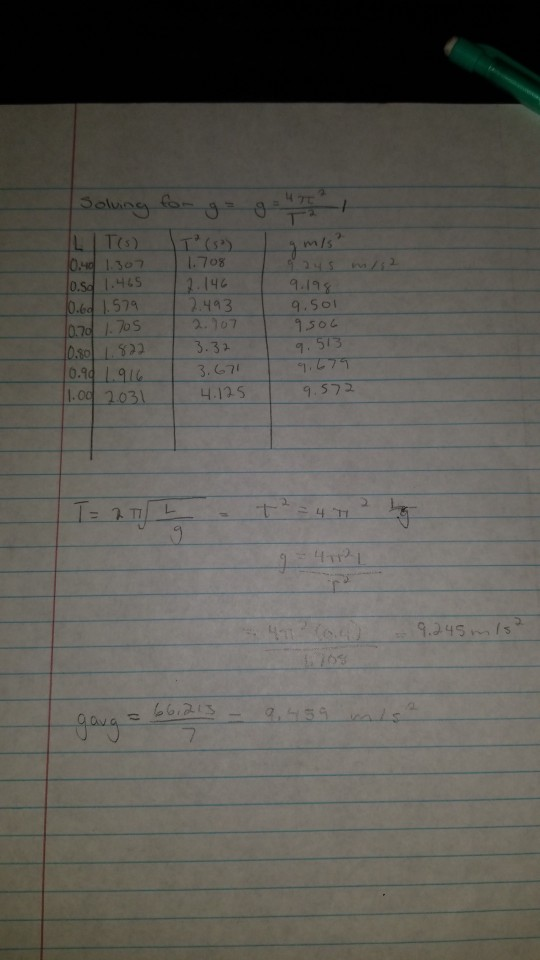 Solving for g = g = 4π²/T² l
L T(s) T²(s²) g m/s²
0.40 1.307 1.708 9.245 m/s²
0.50 1.465 2.146 9.198
0.60 1.579 2.493 9.501
0.70 1.705 2.907 9.506
0.80 1.822 3.32 9.513
0.90 1.916 3.671 9.679
1.00 2031 4.125 9.572
T = 2π√L/g = T² = 4π² L/g
g = 4π²L/T²
= 4π²(0.4)/1.708 = 9.245 m/s²
gavg = 66.213/7 = 9.459 m/s²